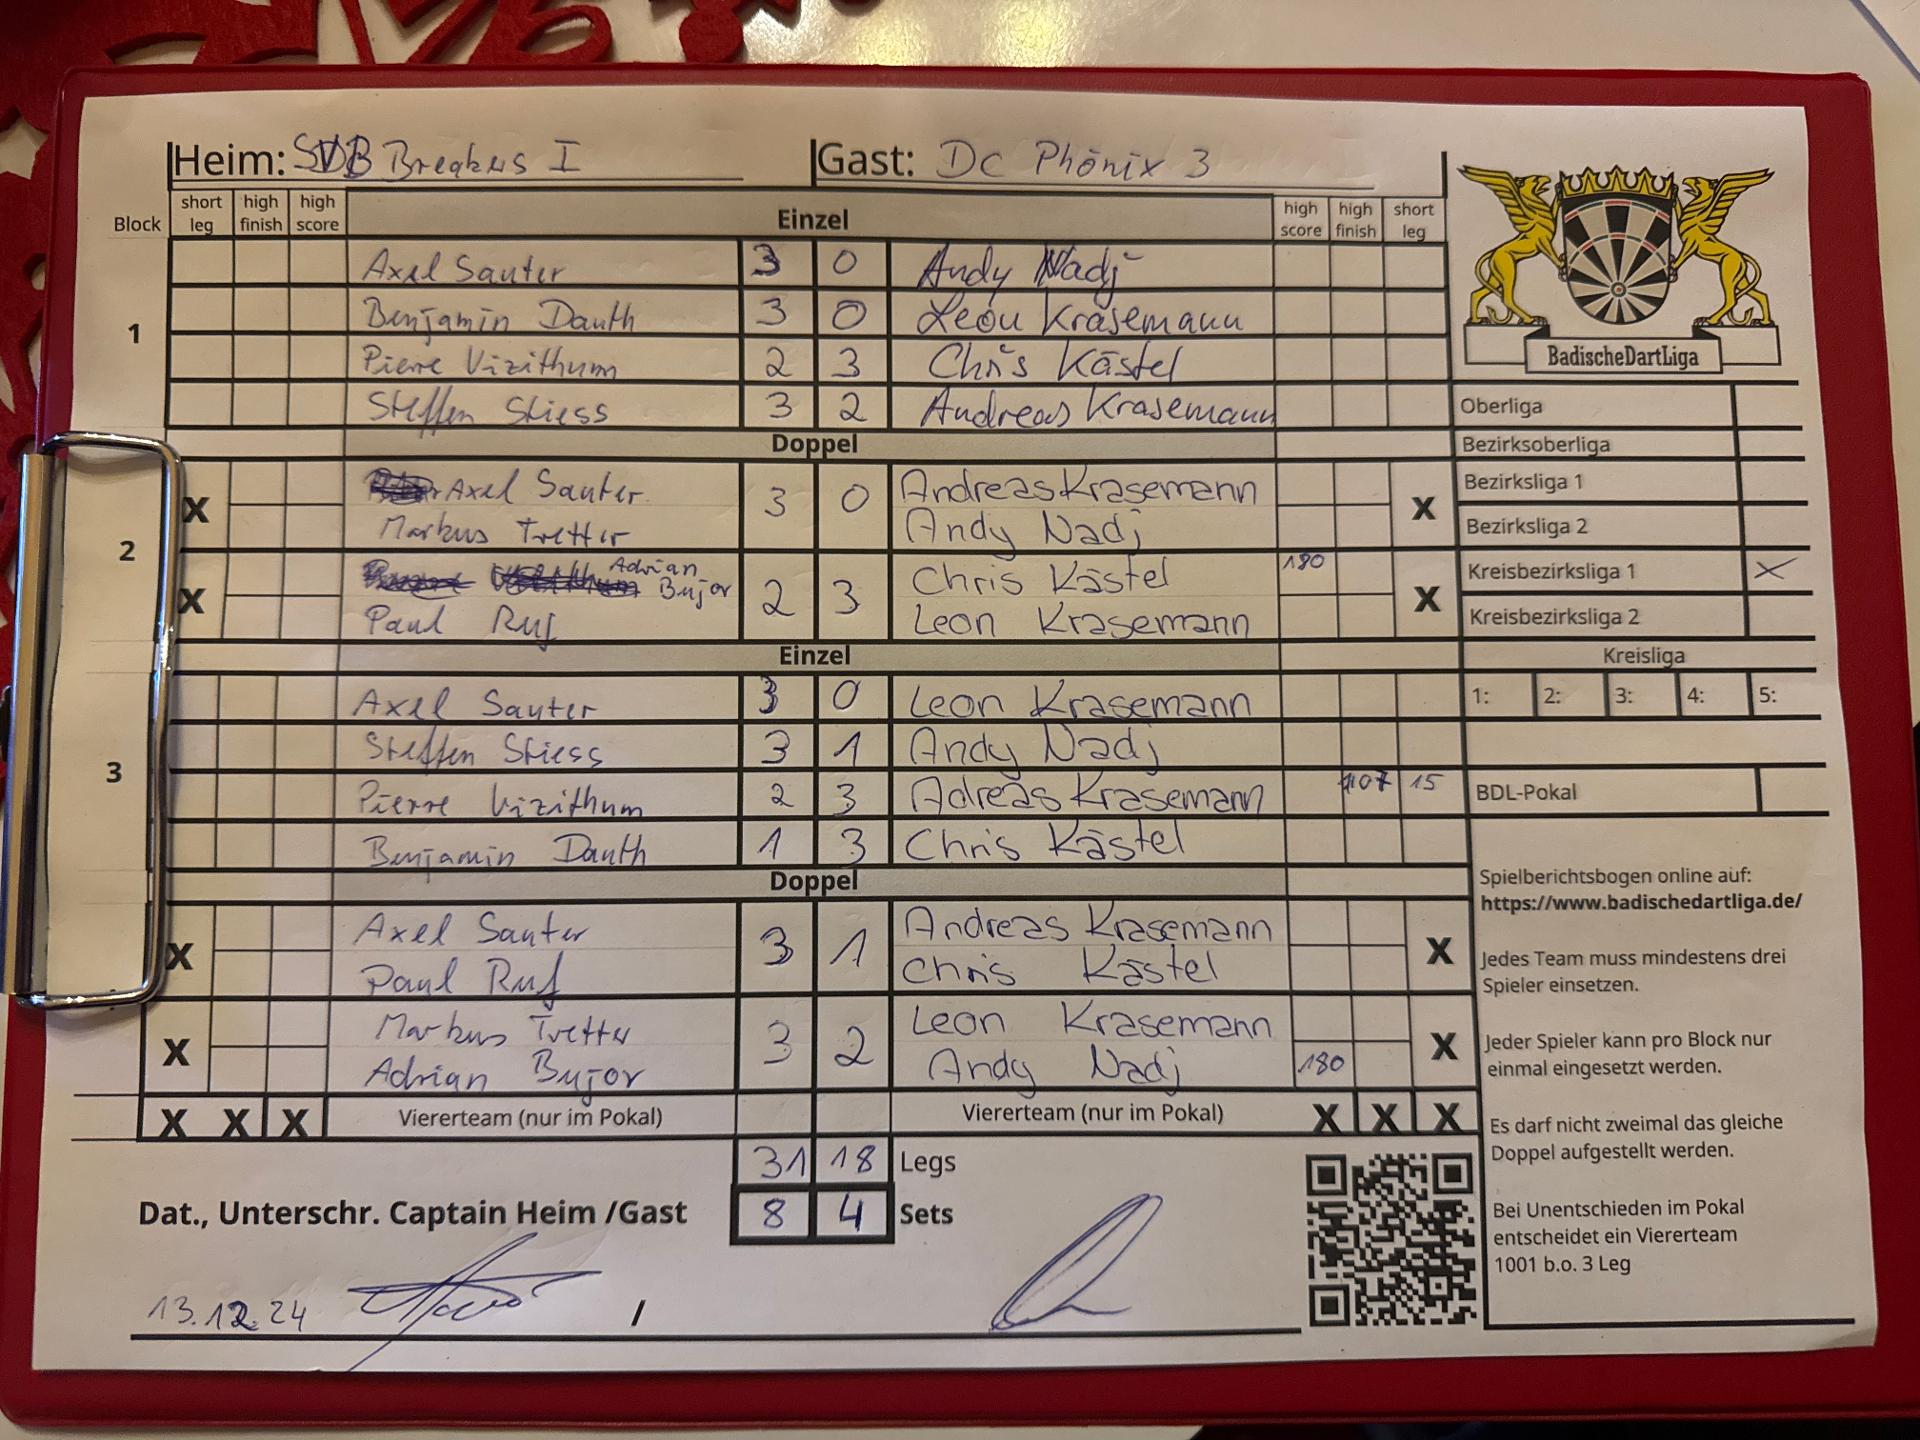 Heim: SVB Breakers I Gast: DC Phönix 3
Block short leg high finish high score Einzel high score high finish short leg
1
Axel Sauter 3 0 Andy Nadj
Benjamin Dauth 3 0 Leon Krasemann
Pierre Vizithum 2 3 Chris Kästel
Steffen Stiess 3 2 Andreas Krasemann
Doppel
2
X Axel Sauter 3 0 Andreas Krasemann X
Markus Tretter Andy Nadj
X Adrian Bujor 2 3 Chris Kästel 180 X
Paul Ruf Leon Krasemann
Einzel
3
Axel Sauter 3 0 Leon Krasemann
Steffen Stiess 3 1 Andy Nadj
Pierre Vizithum 2 3 Adreas Krasemann 107 15
Benjamin Dauth 1 3 Chris Kästel
Doppel
X Axel Sauter 3 1 Andreas Krasemann X
Paul Ruf Chris Kästel
X Markus Tretter 3 2 Leon Krasemann X
Adrian Bujor Andy Nadj 180
X X X Viererteam (nur im Pokal) Viererteam (nur im Pokal) X X X
31 18 Legs
Dat., Unterschr. Captain Heim /Gast 8 4 Sets
13.12.24 /
BadischeDartLiga
Oberliga
Bezirksoberliga
Bezirksliga 1
Bezirksliga 2
Kreisbezirksliga 1 X
Kreisbezirksliga 2
Kreisliga
1: 2: 3: 4: 5:
BDL-Pokal
Spielberichtsbogen online auf:
https://www.badischedartliga.de/
Jedes Team muss mindestens drei
Spieler einsetzen.
Jeder Spieler kann pro Block nur
einmal eingesetzt werden.
Es darf nicht zweimal das gleiche
Doppel aufgestellt werden.
Bei Unentschieden im Pokal
entscheidet ein Viererteam
1001 b.o. 3 Leg